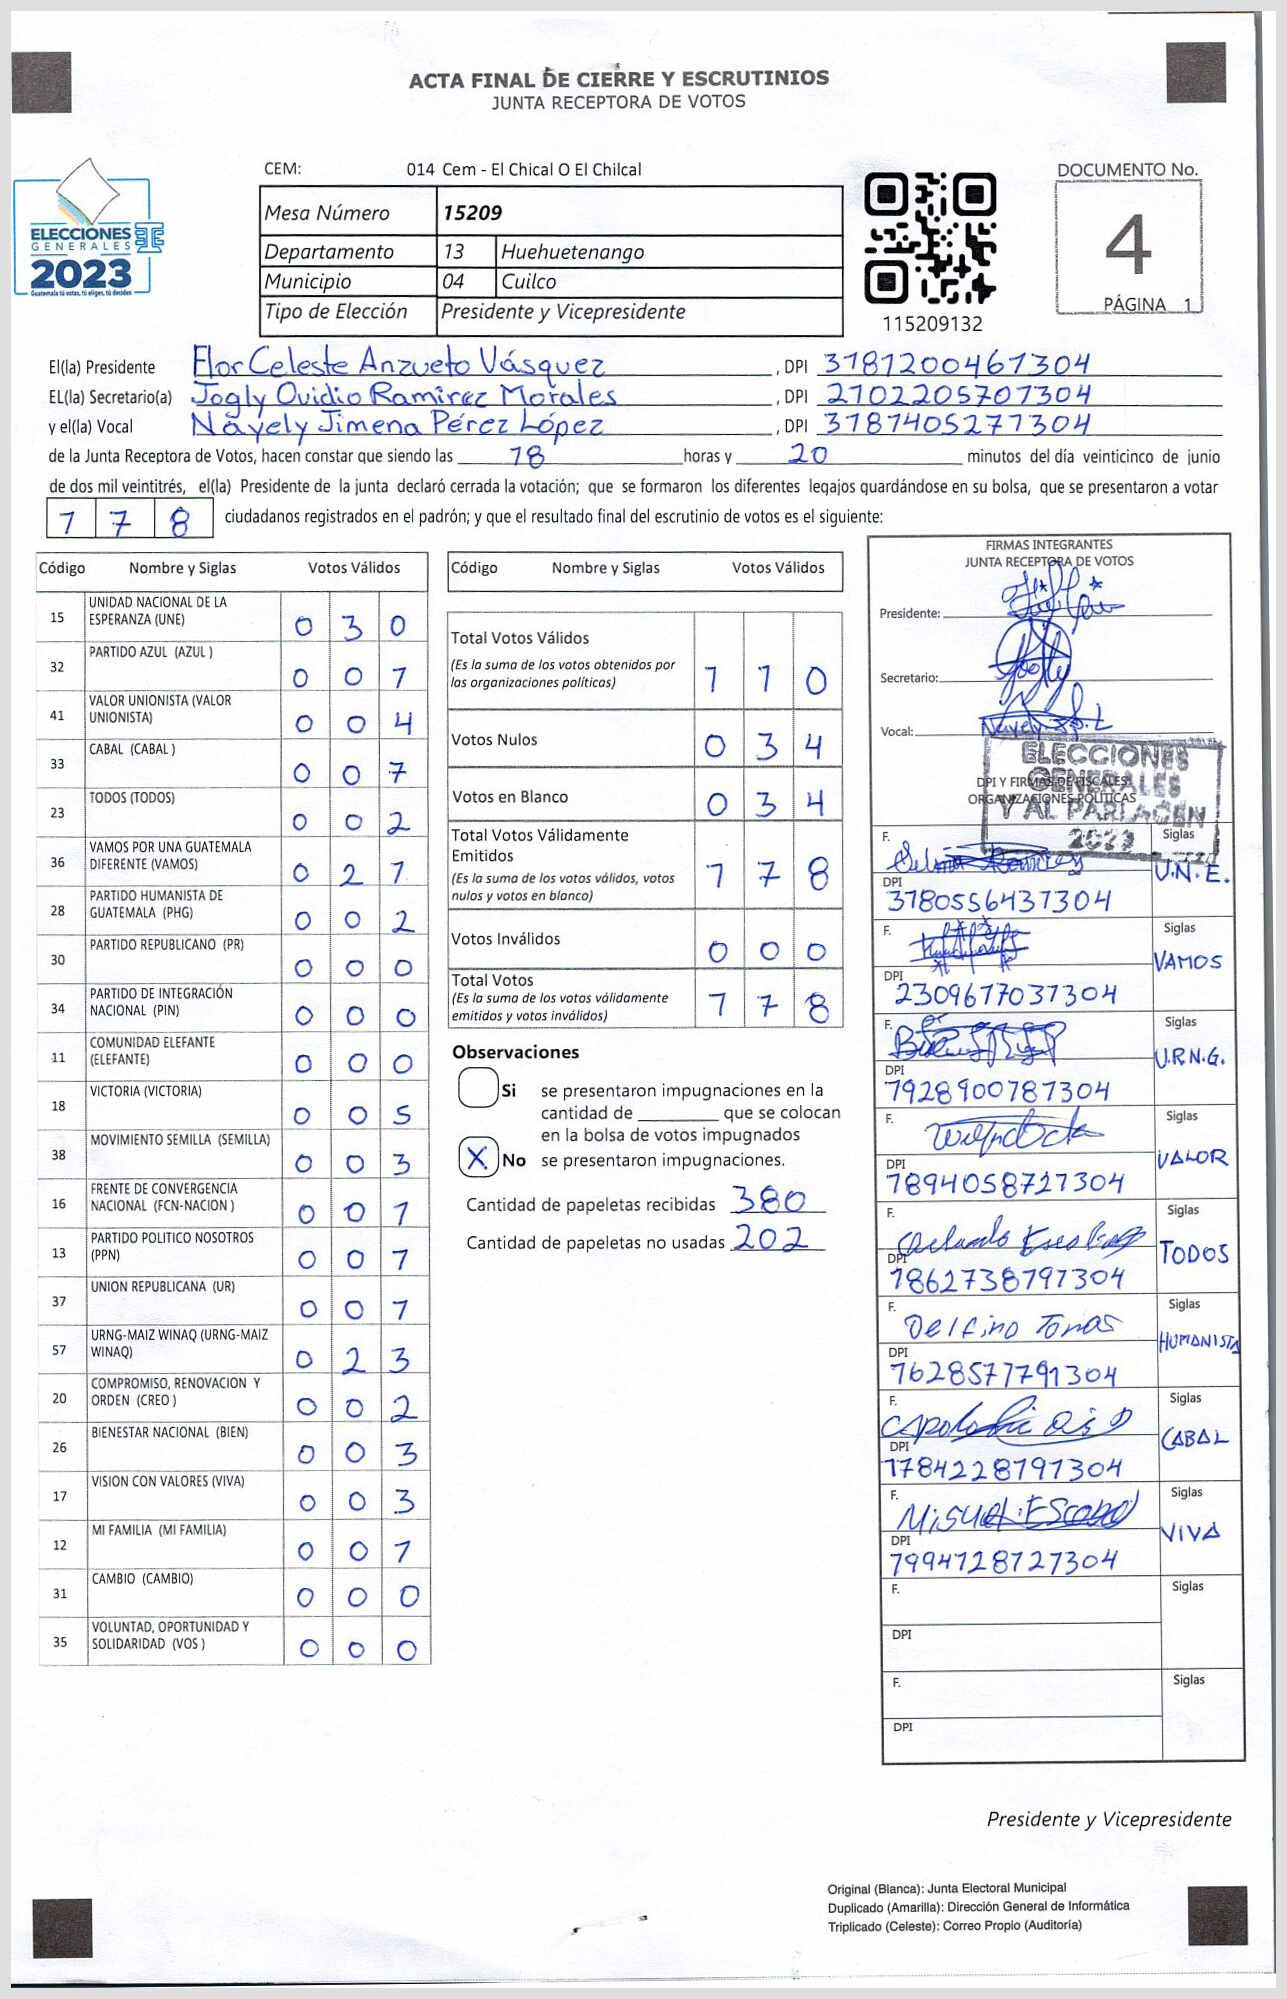 ACTA FINAL DE CIERRE Y ESCRUTINIOS
JUNTA RECEPTORA DE VOTOS
ELECCIONES
GENERALES
2023
Guatemala tú votas, tú eliges, tú decides
CEM: 014 Cem - El Chical O El Chilcal
Mesa Número 15209
Departamento 13 Huehuetenango
Municipio 04 Cuilco
Tipo de Elección Presidente y Vicepresidente
115209132
DOCUMENTO No.
4
PÁGINA 1
El(la) Presidente Flor Celeste Anzueto Vásquez, DPI 3181200461304
EL(la) Secretario(a) Jogly Ovidio Ramirez Morales, DPI 2102205701304
y el(la) Vocal Nayely Jimena Pérez López, DPI 3187405271304
de la Junta Receptora de Votos, hacen constar que siendo las 18 horas y 20 minutos del día veinticinco de junio
de dos mil veintitrés, el(la) Presidente de la junta declaró cerrada la votación; que se formaron los diferentes legajos guardándose en su bolsa, que se presentaron a votar
178 ciudadanos registrados en el padrón; y que el resultado final del escrutinio de votos es el siguiente:
Código Nombre y Siglas Votos Válidos
15 UNIDAD NACIONAL DE LA
ESPERANZA (UNE) 0 3 0
32 PARTIDO AZUL (AZUL ) 0 0 1
41 VALOR UNIONISTA (VALOR
UNIONISTA) 0 0 4
33 CABAL (CABAL ) 0 0 7
23 TODOS (TODOS) 0 0 2
36 VAMOS POR UNA GUATEMALA
DIFERENTE (VAMOS) 0 2 1
28 PARTIDO HUMANISTA DE
GUATEMALA (PHG) 0 0 2
30 PARTIDO REPUBLICANO (PR) 0 0 0
34 PARTIDO DE INTEGRACIÓN
NACIONAL (PIN) 0 0 0
11 COMUNIDAD ELEFANTE
(ELEFANTE) 0 0 0
18 VICTORIA (VICTORIA) 0 0 5
38 MOVIMIENTO SEMILLA (SEMILLA) 0 0 3
16 FRENTE DE CONVERGENCIA
NACIONAL (FCN-NACION ) 0 0 1
13 PARTIDO POLITICO NOSOTROS
(PPN) 0 0 1
37 UNION REPUBLICANA (UR) 0 0 1
57 URNG-MAIZ WINAQ (URNG-MAIZ
WINAQ) 0 2 3
20 COMPROMISO, RENOVACION Y
ORDEN (CREO ) 0 0 2
26 BIENESTAR NACIONAL (BIEN) 0 0 3
17 VISION CON VALORES (VIVA) 0 0 3
12 MI FAMILIA (MI FAMILIA) 0 0 1
31 CAMBIO (CAMBIO) 0 0 0
35 VOLUNTAD, OPORTUNIDAD Y
SOLIDARIDAD (VOS ) 0 0 0
Código Nombre y Siglas Votos Válidos
Total Votos Válidos
(Es la suma de los votos obtenidos por
las organizaciones políticas) 1 1 0
Votos Nulos 0 3 4
Votos en Blanco 0 3 4
Total Votos Válidamente
Emitidos
(Es la suma de los votos válidos, votos
nulos y votos en blanco) 1 7 8
Votos Inválidos 0 0 0
Total Votos
(Es la suma de los votos válidamente
emitidos y votos inválidos) 1 7 8
Observaciones
Si se presentaron impugnaciones en la
cantidad de ________ que se colocan
en la bolsa de votos impugnados
X No se presentaron impugnaciones.
Cantidad de papeletas recibidas 380
Cantidad de papeletas no usadas 202
FIRMAS INTEGRANTES
JUNTA RECEPTORA DE VOTOS
Presidente:
Secretario:
Vocal:
ELECCIONES
GENERALES
Y AL PARLACEN
2023
DPI Y FIRMAS DE FISCALES
ORGANIZACIONES POLÍTICAS
F. Siglas
U.N.E.
DPI
3180556431304
F. Siglas
VAMOS
DPI
2309677031304
F. Siglas
U.R.N.G.
DPI
1928900781304
F. Siglas
VALOR
DPI
1894058121304
F. Siglas
TODOS
DPI
1862738191304
F. Delfino Tomas Siglas
HUMANISTA
DPI
1628577191304
F. Siglas
CABAL
DPI
1784228191304
F. Miguel Escobar Siglas
VIVA
DPI
1994128121304
F. Siglas
DPI
F. Siglas
DPI
Presidente y Vicepresidente
Original (Blanca): Junta Electoral Municipal
Duplicado (Amarilla): Dirección General de Informática
Triplicado (Celeste): Correo Propio (Auditoría)